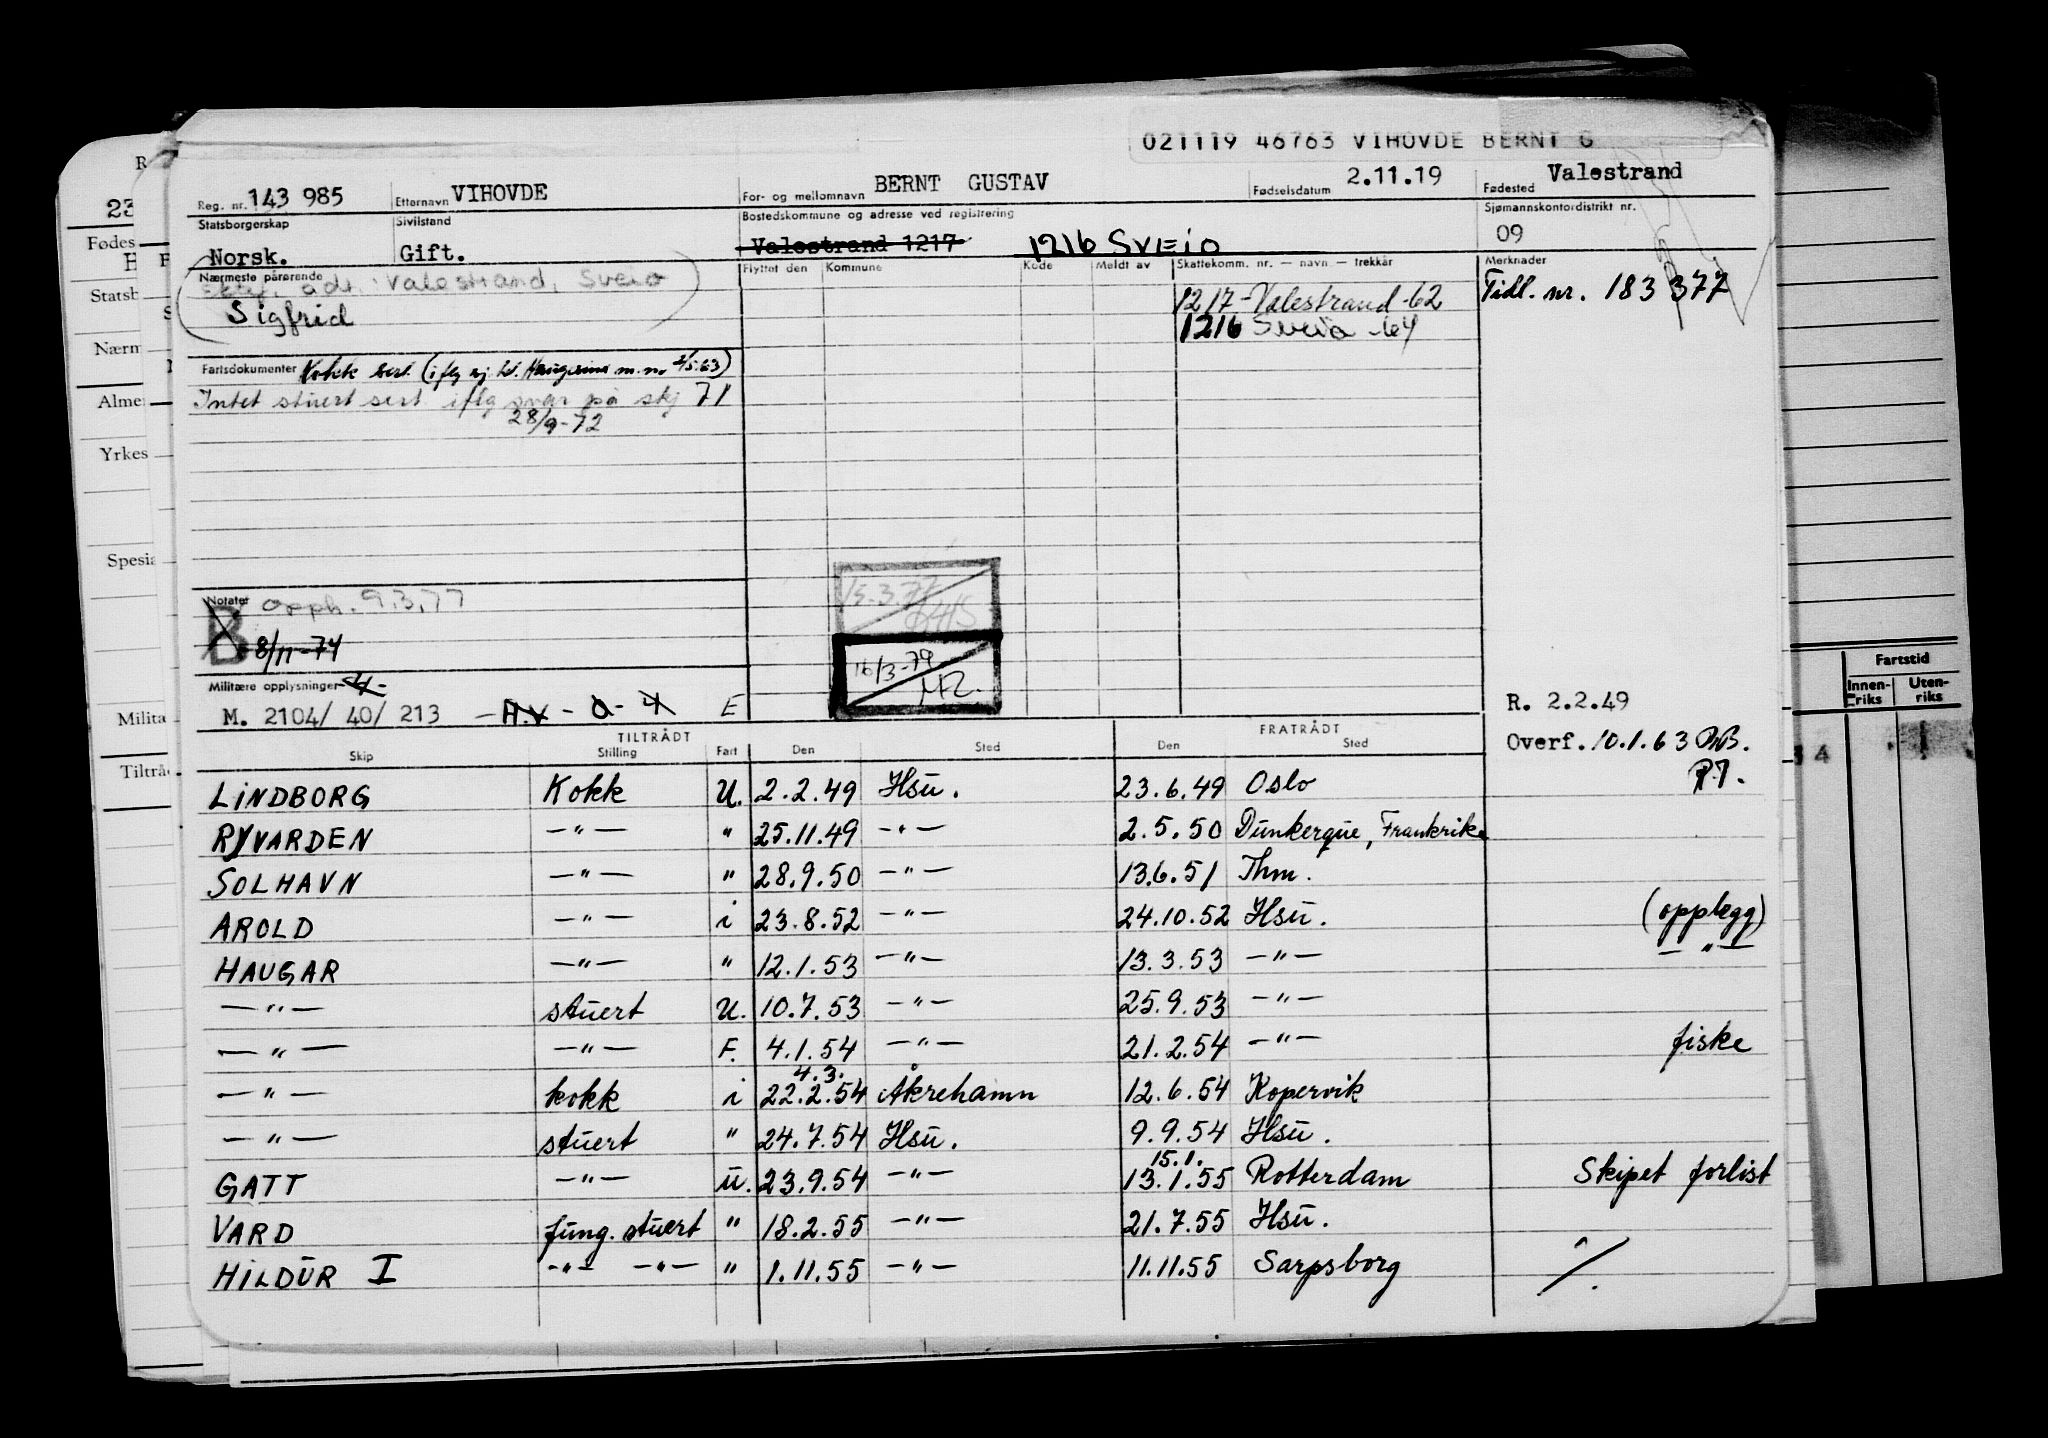 021119 46763 VIHOVDE BERNT G
Reg. nr. 143 985 Etternavn VIHOVDE For- og mellomnavn BERNT GUSTAV Fødselsdatum 2.11.19 Fødested Valestrand
Statsborgerskap Norsk. Sivilstand Gift. Bostedskommune og adresse ved registrering Valestrand 1217 1216 SVEIO Sjømannskontordistrikt nr. 09
Nærmeste pårørende Flyttet den Kommune Kode Meldt av Skattekomm. nr. — navn — trekkår Merknader
adr. Valestrand, Sveio
Sigfrid
1217-Valestrand-62
1216 Sveio -64
Tidl. nr. 183 377
Fartsdokumenter Kokk sert. (iflg m.m. 2/5.63)
Intet stuert sert iflg svar på skj 71
28/9-72
Notater Opph. 9.3.77
B
8/11-74
15-3.77
16/3-79
Militære opplysninger
M. 2104/ 40/ 213 E
R. 2.2.49
Overf. 10.1.63
TILTRÅDT FRATRÅDT
Skip Stilling Fart Den Sted Den Sted
LINDBORG Kokk U. 2.2.49 Hsu. 23.6.49 Oslo
RYVARDEN —"— " 25.11.49 —"— 2.5.50 Dunkerque, Frankrike
SOLHAVN —"— " 28.9.50 —"— 13.6.51 Thm.
AROLD —"— i 23.8.52 —"— 24.10.52 Hsu. (opplegg)
HAUGAR —"— " 12.1.53 —"— 13.3.53 —"— —"—
—"— stuert U. 10.7.53 —"— 25.9.53 —"—
—"— —"— F. 4.1.54 —"— 21.2.54 —"— fiske
4.3.
—"— kokk i 22.2.54 Åkrehamn 12.6.54 Kopervik
—"— stuert " 24.7.54 Hsu. 9.9.54 Hsu.
15.1.
GATT —"— u. 23.9.54 —"— 13.1.55 Rotterdam Skipet forlist
VARD fung. stuert " 18.2.55 —"— 21.7.55 Hsu.
HILDUR I —"— —"— " 1.11.55 —"— 11.11.55 Sarpsborg
R
23
Fødes
Statsb
Nærm
Alme
Yrkes
Spesia
Milita
Tiltrå
Fartstid
Innen-
riks
Uten-
riks